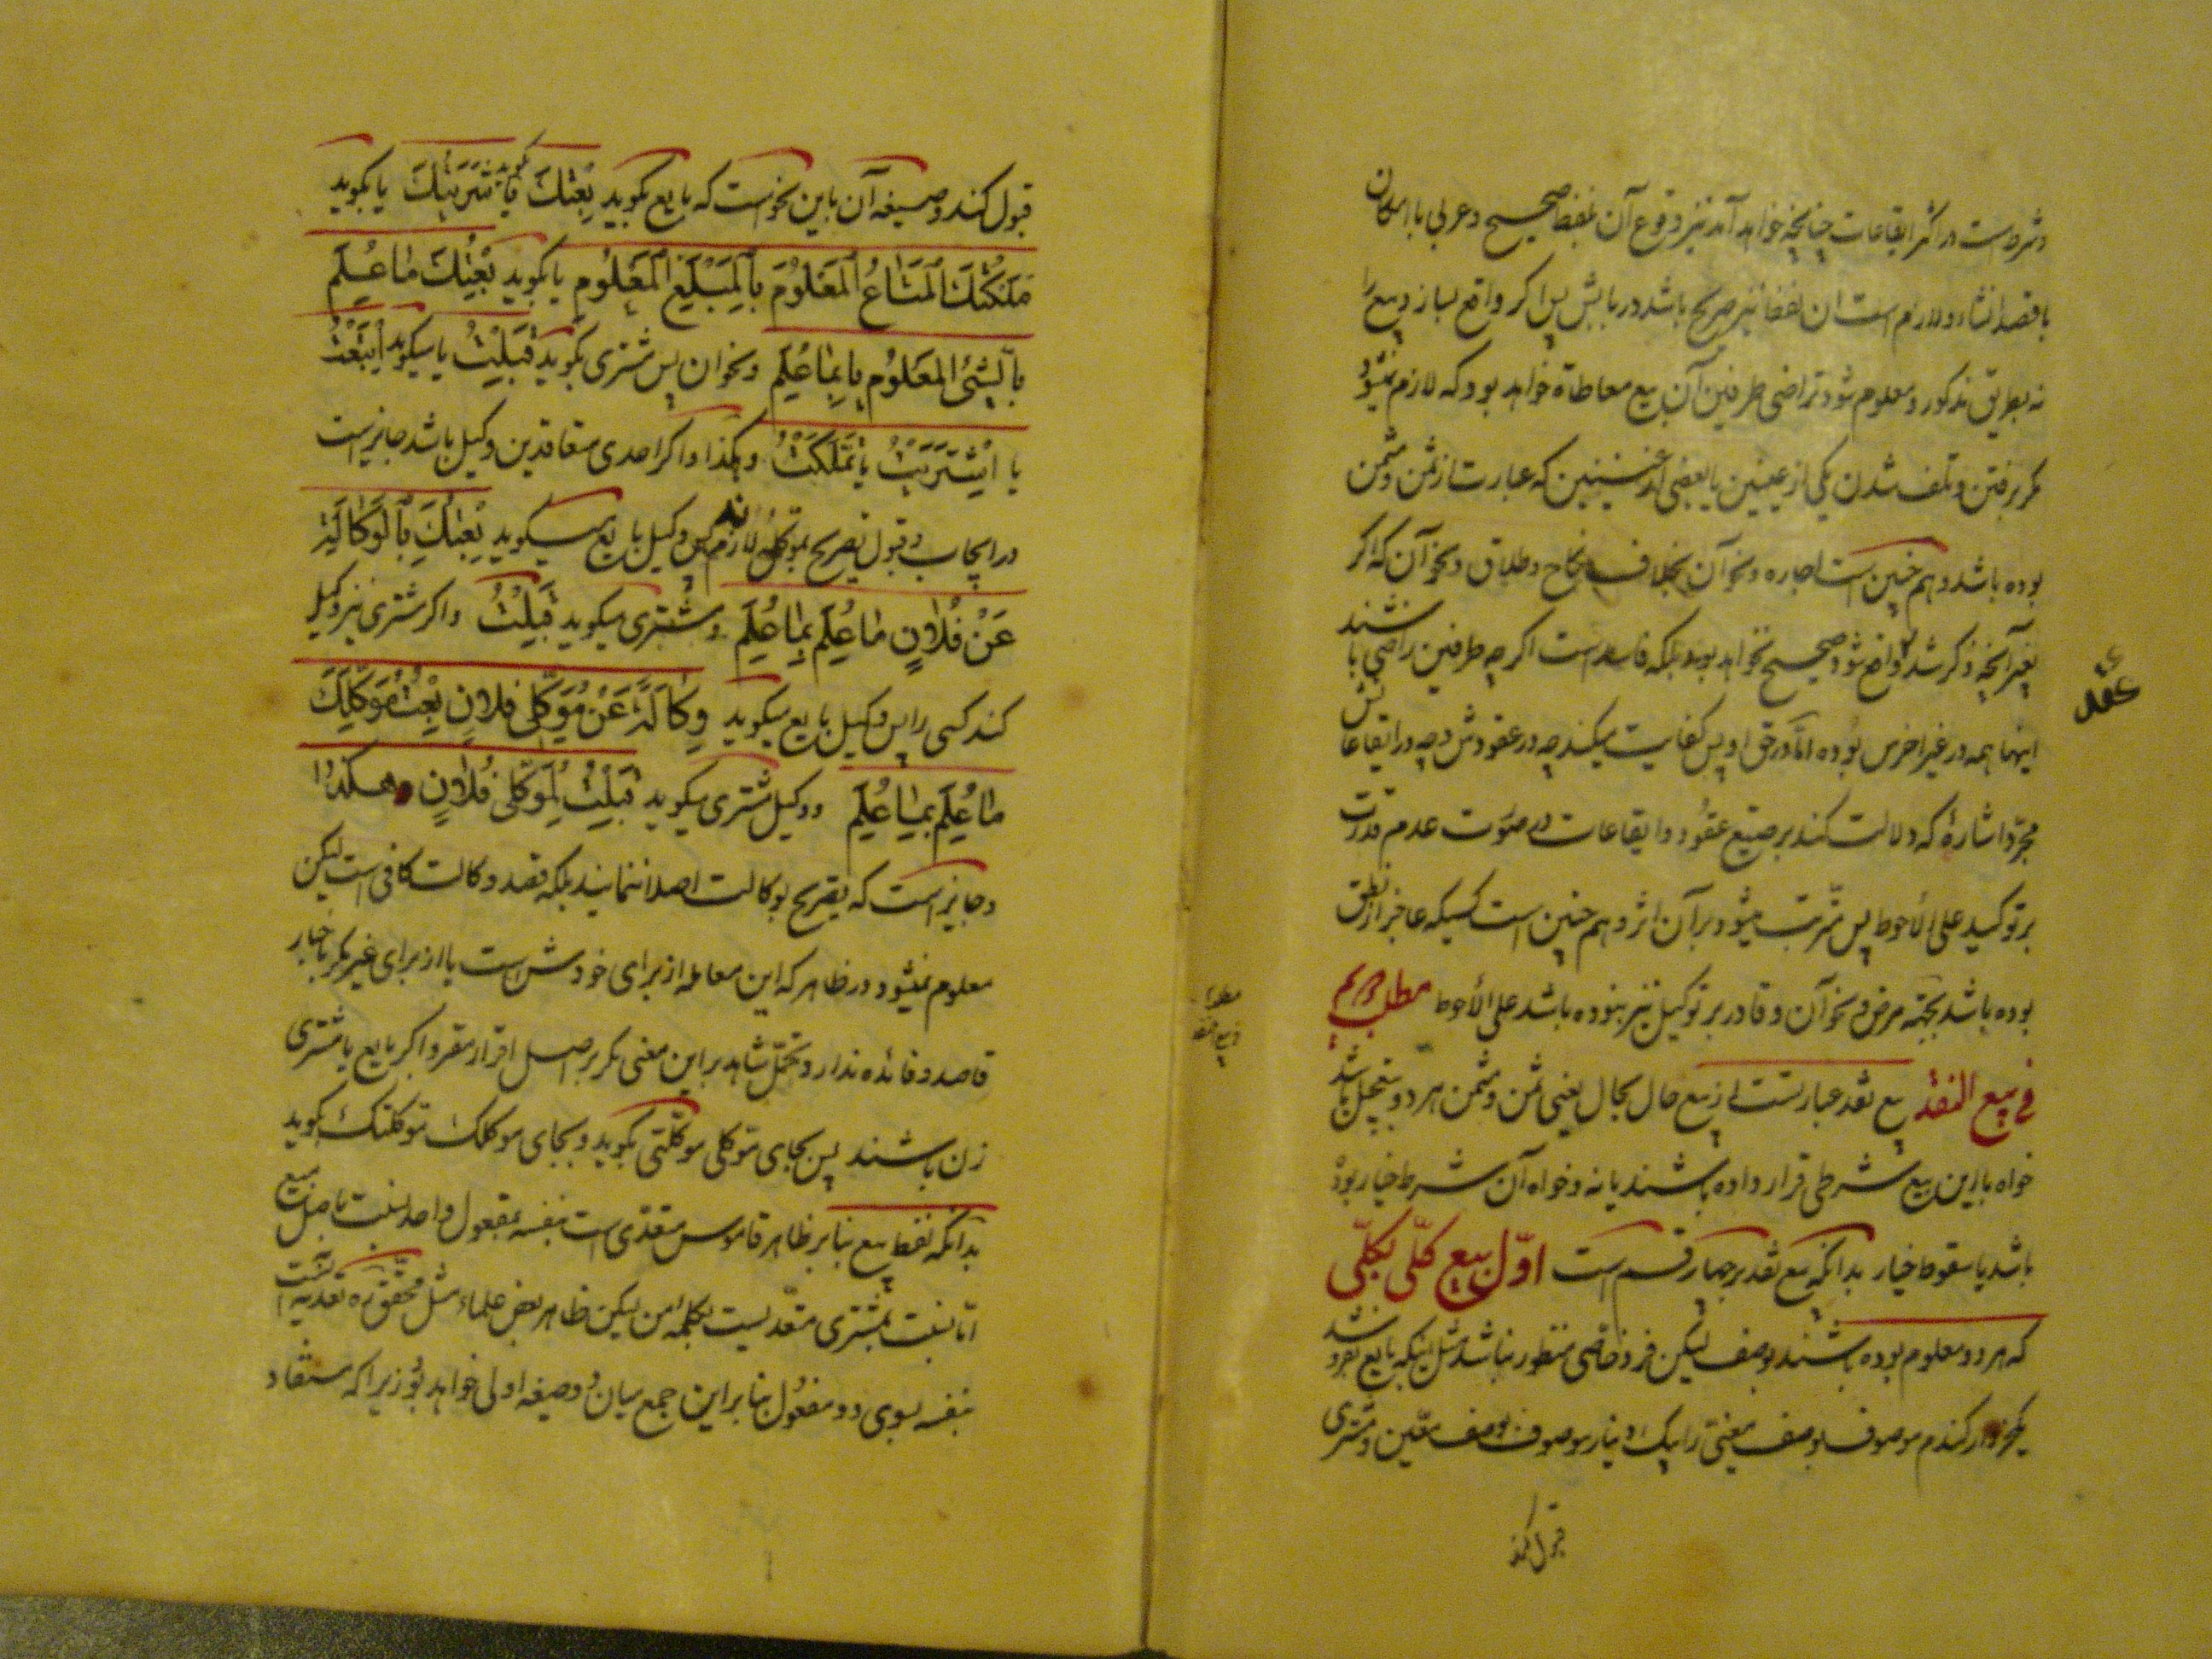 و شرط است در اکثر ایقاعات چنانچه خواهد آمد نیز وقوع آن بلفظ صحیح و عربی با امکان
با قصد انشاء و لازم است ان لفظ نیز صریح باشد در بابش پس اگر واقع بسازد بیع را
نه بطریق مذکور و معلوم شود تراضی طرفین آن بیع معاطاة خواهد بود که لازم نمیشود
مگر برفتن و تلف شدن یکی از عینین یا بعضی از عینین که عبارت از ثمن و مثمن
بوده باشد و هم چنین است اجاره و نحو آن بخلاف نکاح و طلاق و نحو آن که اگر
بغیر آنچه ذکر شد واقع شود صحیح نخواهد بود بلکه فاسد است اگر چه طرفین راضی باشند
عقد
اینها همه در غیر اخرس بوده اما در حق او پس کفایت میکند چه در عقودش و چه در ایقاعاتش
مجرد اشارۀ که دلالت کند بر صیغ عقود و ایقاعات در صورت عدم قدرت
بر توکیل علی الأحوط پس مترتب میشود بر آن اثر و هم چنین است کسیکه عاجز از نطق
بوده باشد بجهة مرض و نحو آن و قادر بر توکیل نیز نبوده باشد علی الأحوط مطلب
فی بیع النقد بیع نقد عبارتست از بیع حال بحال یعنی ثمن و مثمن هر دو معجل باشد
خواه با این بیع شرطی قرار داده باشند یا نه و خواه آن شرط خیار بوده
باشد یا سقوط خیار بدانکه بیع نقد بر چهار قسم است اوّل بیع کلّی بکلّی
که هر دو معلوم بوده باشند بوصف لیکن فرد خاصّی منظور نباشد مثل اینکه بایع بفروشد
یکخروار گندم موصوف بوصف معینی را بیک دینار موصوف بوصف معین و مشتری
قبول کند
قبول کند و صیغه آن باین نحو است که بایع بگوید بِعْتُكَ یا بگوید شَرَيْتُكَ یا بگوید
مَلَّكْتُكَ الْمَتَاعَ الْمَعْلُومَ بِالْمَبْلَغِ الْمَعْلُومِ یا بگوید بِعْتُكَ مٰا عُلِمَ
بِالشَّئِ الْمَعْلُومِ یا بِمٰا عُلِمَ و نحو ان پس مشتری بگوید قَبِلْتُ یا میگوید اِبْتَعْتُ
یا اِشْتَرَيْتُ یا تَمَلَّكْتُ و هکذا و اگر احدی متعاقدین وکیل باشد جایز است
در ایجاب و قبول تصریح بموکل لازم پس وکیل بایع میگوید بِعْتُكَ بِالْوَكٰالَةِ
عَنْ فُلاٰنٍ مٰا عُلِمَ بِمٰا عُلِمَ و مشتری میگوید قَبِلْتُ و اگر مشتری نیز وکیل
کند کسی را پس وکیل بایع میگوید وِكٰالَةً عَنْ مُوَكِّلِی فُلاٰنٍ بِعْتُ مُوَكِّلَكَ
مٰا عُلِمَ بِمٰا عُلِمَ و وکیل مشتری میگوید قَبِلْتُ لِمُوَكِّلِی فُلاٰنٍ و هکذا
و جایز است که تصریح بوکالت اصلا ننمایند بلکه قصد وکالت کافی است لیکن
معلوم نمیشود در ظاهر که این معامله از برای خودش است یا از برای غیر مگر باخبار
قاصد و فائده ندارد تحمّل شاهد بر این معنی مگر بر اصل اقرار مقر و اگر بایع یا مشتری
زن باشند پس بجای موکلی موکلتی بگوید و بجای موکلک موکلتک بگوید
بدانکه لفظ بیع بنابر ظاهر قاموس متعدّی است بنفسه بمفعول واحد نسبت باصل مبیع
امّا نسبت بمشتری متعدّیست بکلمه من لیکن ظاهر بعض علماء مثل محقّق ره تعدیه آنست
بنفسه بسوی دو مفعول بنابراین جمع میان دو صیغه اولی خواهد بود زیرا که مستفاد